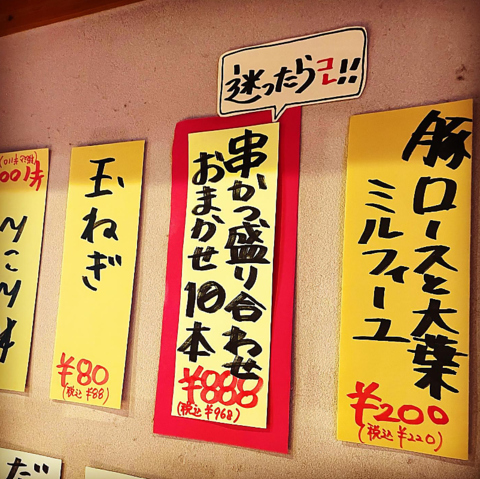 迷ったらコレ!!
豚ロースと大葉
ミルフィーユ
¥200
(税込 ¥220)
串かつ盛り合わせ
おまかせ10本
¥888
(税込 ¥968)
玉ねぎ
¥80
(税込 ¥88)
だ